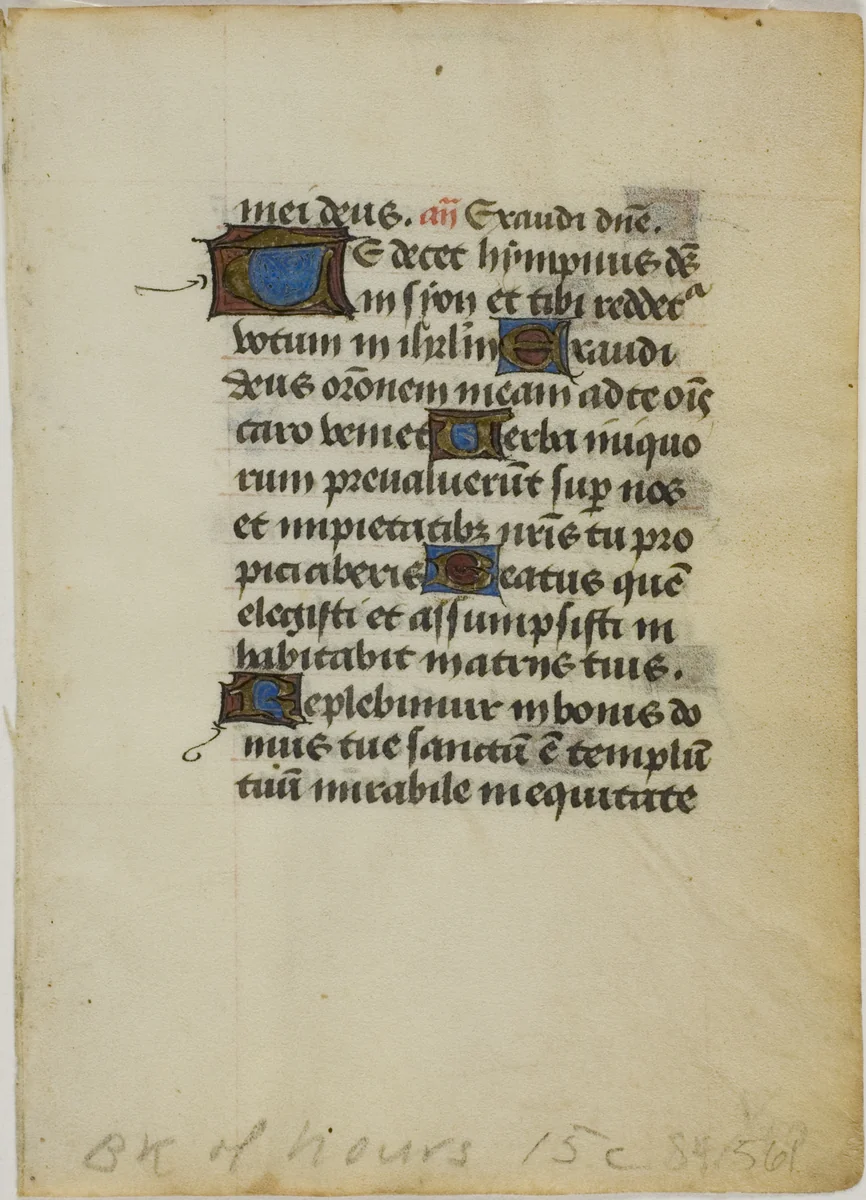 mei deus. añ Exaudi dñe.
TE decet hympnus dš
in syon et tibi reddetᵃ
votum in ihrl'm Exaudi
deus orōnem meam ad te oīs
caro veniet Verba iniquo
rum prevaluerūt sup̱ nos
et impietatibꝫ nrīs tu pro
piciaberis Beatus quē
elegisti et assumpsisti in
habitabit in atriis tuis.
Replebimur in bonis do
mus tue sanctū ē templū
tuū mirabile in equitate
BK of hours 15c